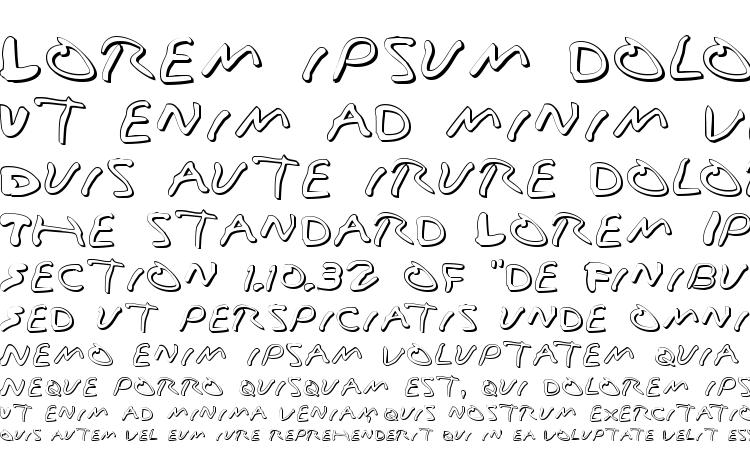 LOREM IPSUM DOLO
UT ENIM AD MINIM VE
DUIS AUTE IRURE DOLOR
THE STANDARD LOREM IP
SECTION 1.10.32 OF "DE FINIBU
SED UT PERSPICIATIS UNDE OMNI
NEMO ENIM IPSAM VOLUPTATEM QUIA
NEQUE PORRO QUISQUAM EST, QUI DOLOREM IPS
UT ENIM AD MINIMA VENIAM, QUIS NOSTRUM EXERCITATIO
QUIS AUTEM VEL EUM IURE REPREHENDERIT QUI IN EA VOLUPTATE VELIT ESS